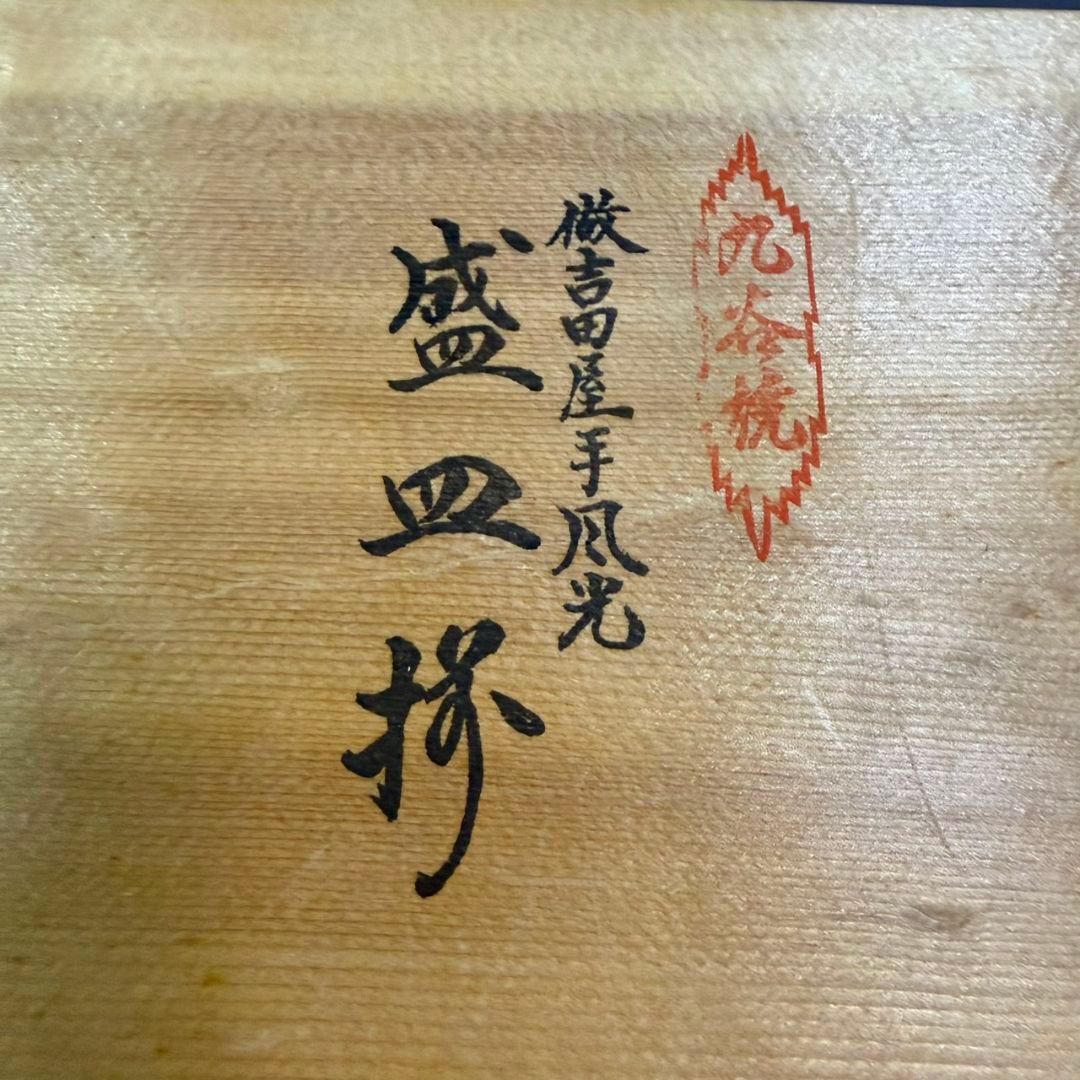 九谷焼
倣吉田屋手風光
盛皿揃